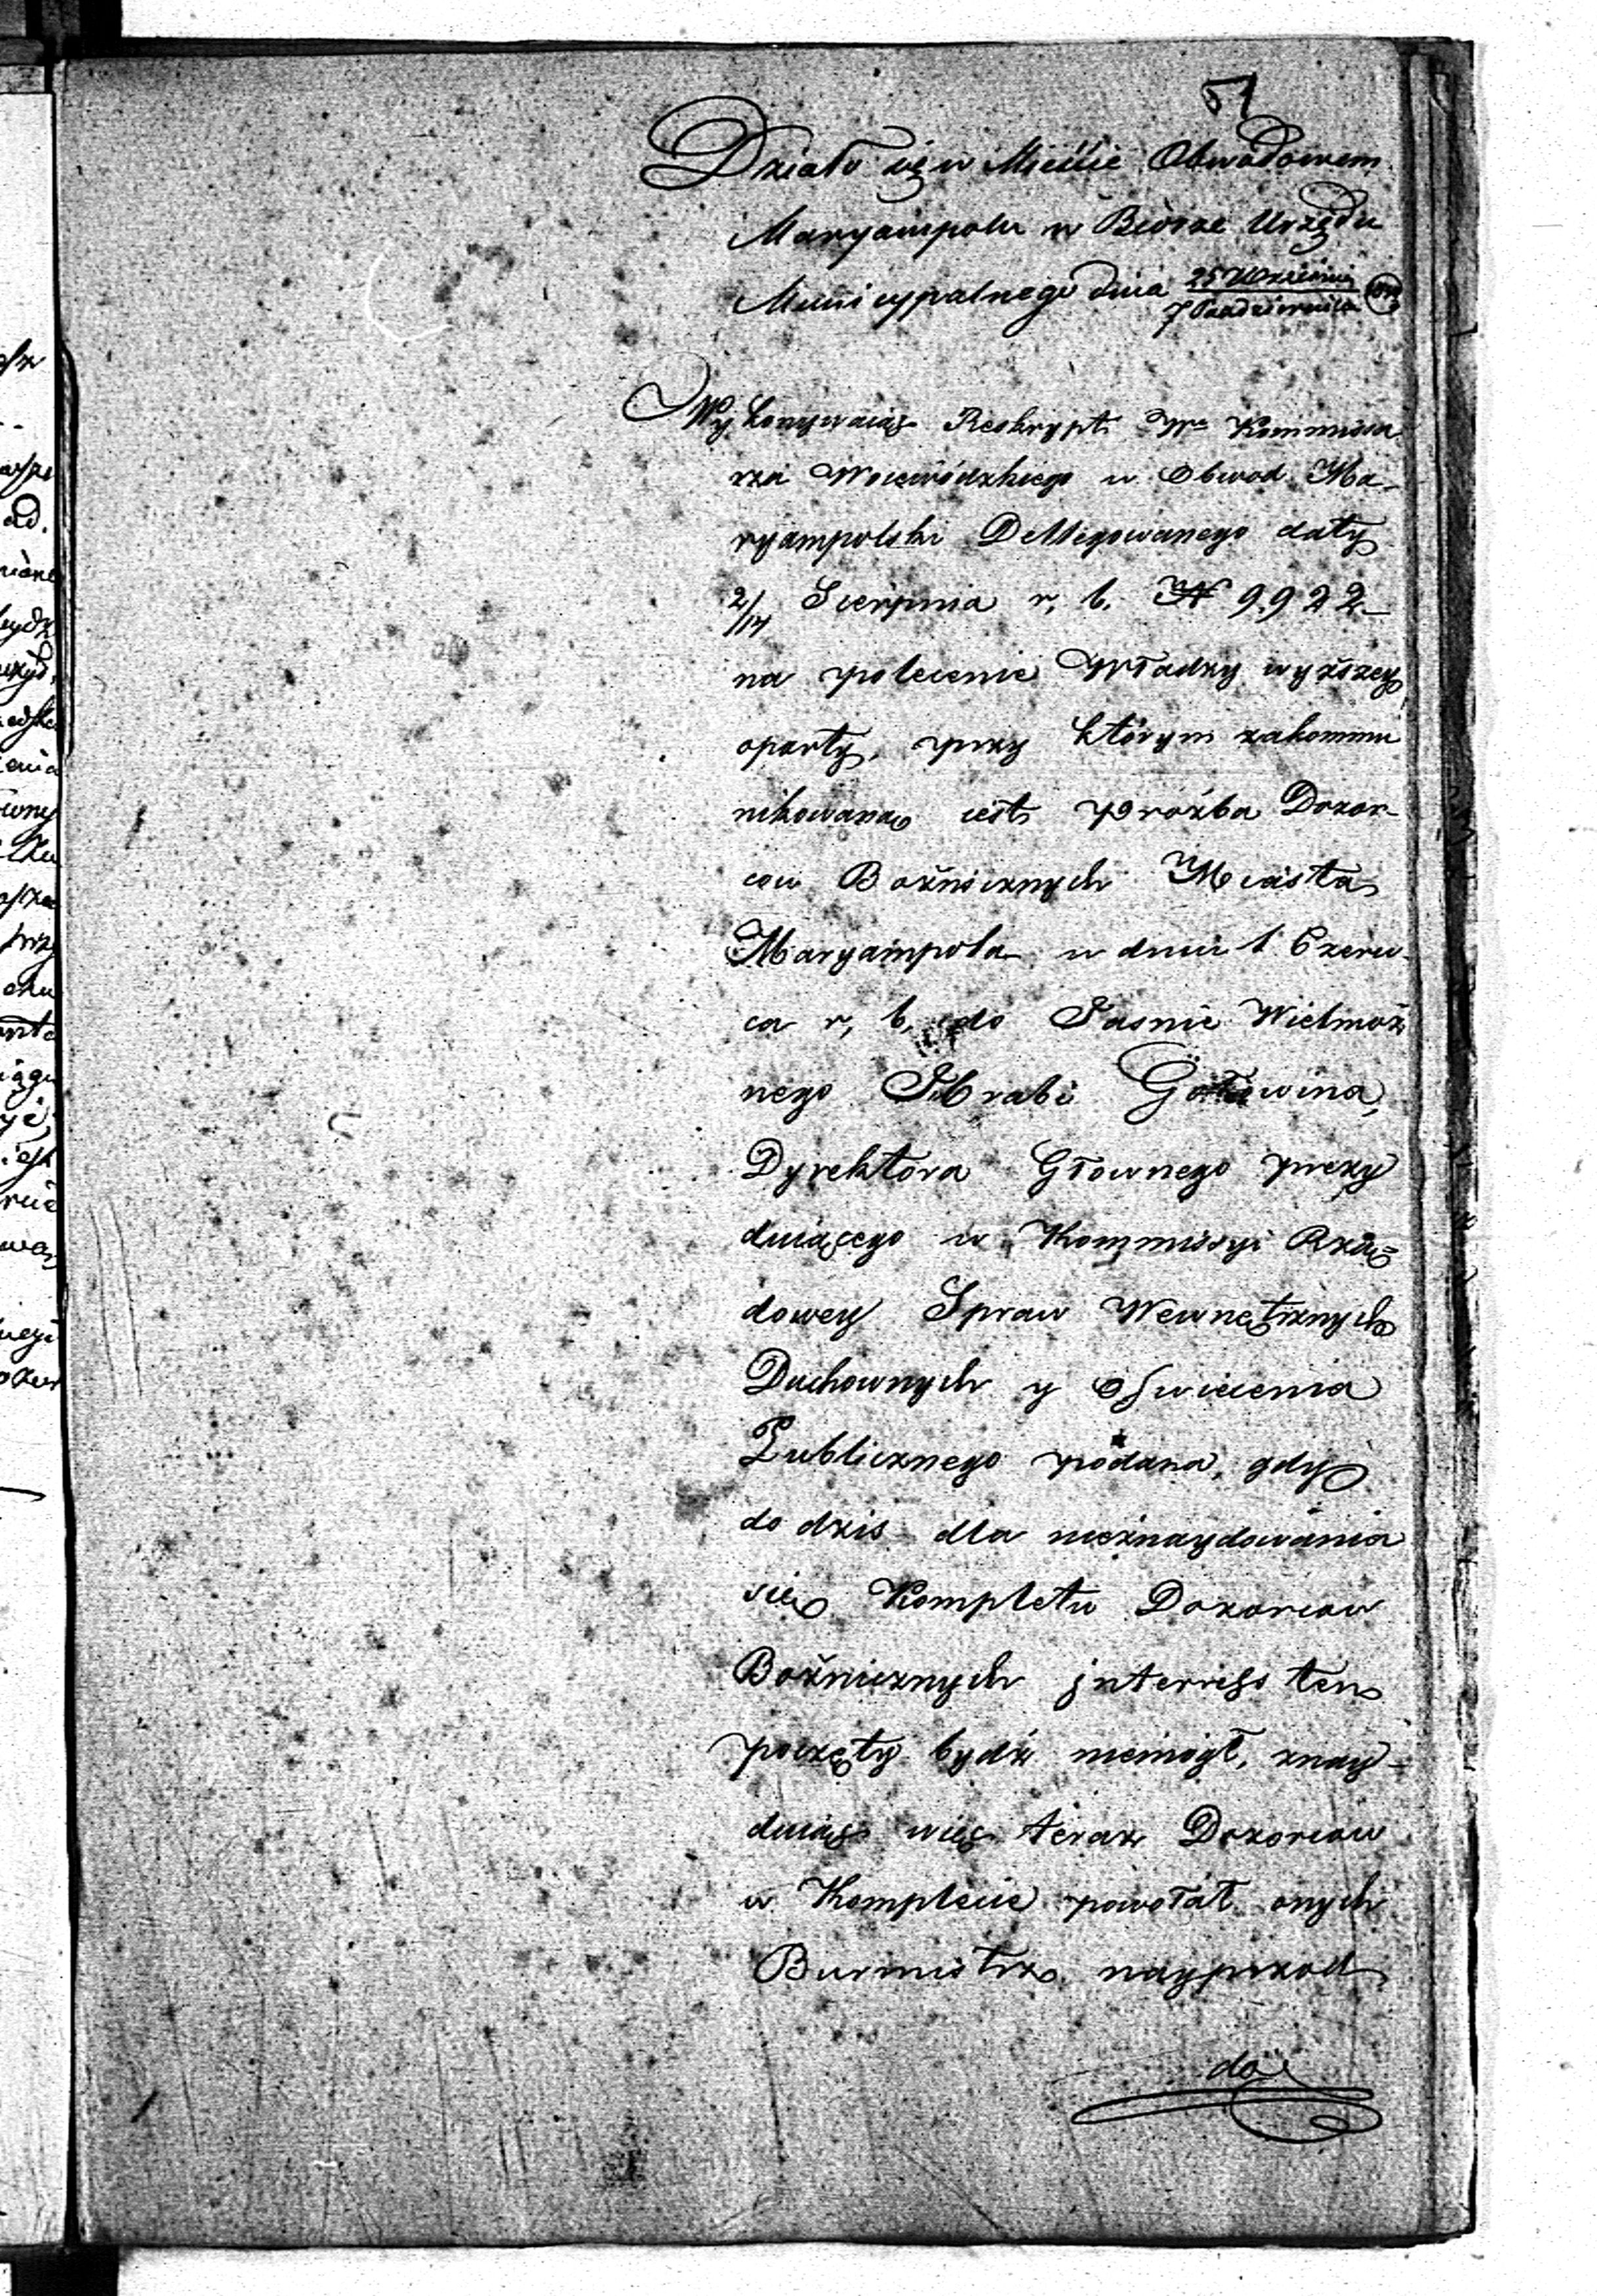 51
Działo się w Mieście Obwodowem
Maryampolu w Biórze Urzędu
Municypalnego dnia 25 Września / 7 Października
Wykonywaiąc Reskrypt Wo Kommissa
rza Woiewódzkiego w Obwod Ma-
ryampolski Dellegowanego daty
2/14 Sierpnia r, b, N 9922
na polecenie Władzy wyższey
oparty, przy którym zakommu
nikowana iest proźba Dozor-
cow Bożnicznych Miasta
Maryampola w dniu 1 Czerw-
ca r, b, do Jasnie Wielmoż
nego Hrabi Gołowina,
Dyrektora Głownego prezy
duiącego w Kommissyi Rzą=
dowey Spraw Wewnętrznych
Duchownych y Oswiecenia
Publicznego podana, gdy
do dzis dla nieznaydowania
się Kompletu Dozorcow
Bożnicznych jnterress ten
poczęty bydź niemogł, znay-
duiąc więc teraz Dozorcow
w Komplecie powołał onych
Burmistrz nayprzod
do